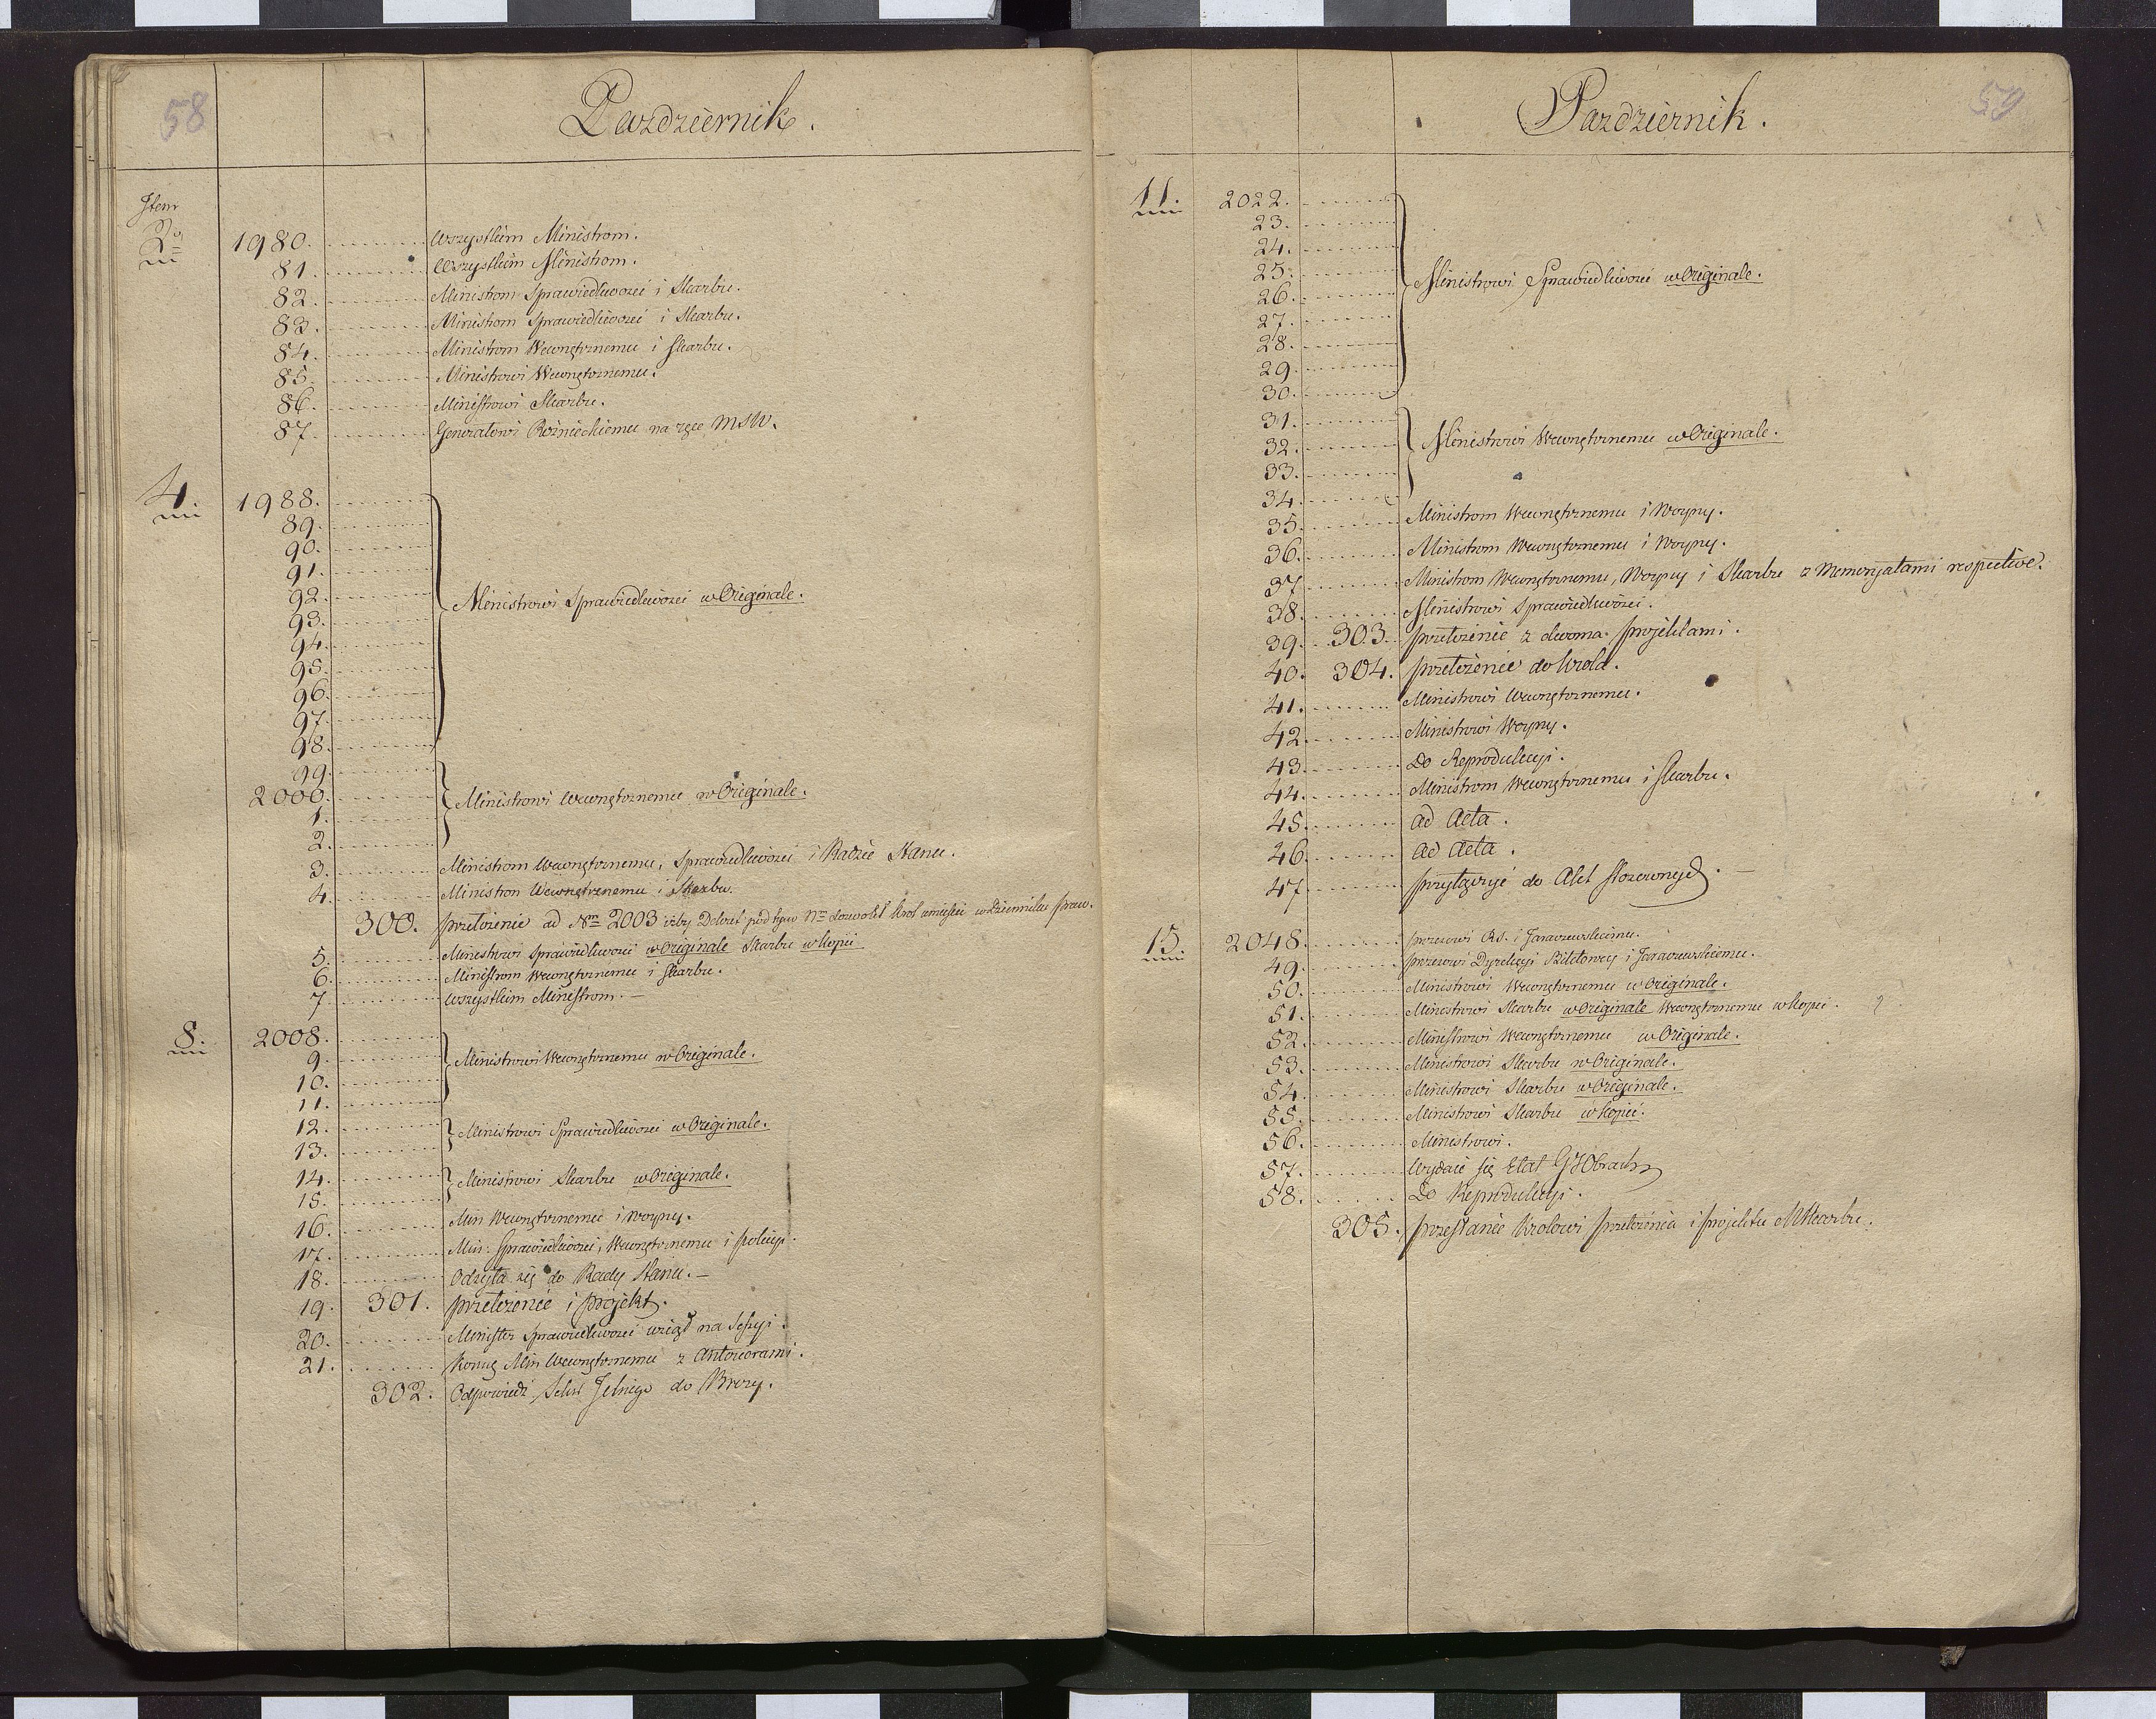 58
Pazdziernik.
Item
2º
1980. Wszystkim Ministrom.
81. Wszystkim Ministrom.
82. Ministrom Sprawiedliwości i Skarbu.
83. Ministrom Sprawiedliwości i Skarbu.
84. Ministrom Wewnętrznemu i Skarbu.
85. Ministrowi Wewnętrznemu.
86. Ministrowi Skarbu.
87. Generałowi Rożnieckiemu na ręce MSW.
4. 1988.
89.
90.
91.
92. Ministrowi Sprawiedliwości w Originale.
93.
94.
95.
96.
97.
98.
99.
2000. Ministrowi Wewnętrznemu w Originale.
1.
2.
3. Ministrom Wewnętrznemu, Sprawiedliwości i Radzie Stanu.
4. Ministrom Wewnętrznemu i Skarbu.
300. przełożenie ad Nrm 2003 iżby Dekret pod tym Nrm dozwolił Krol umieścić w Dzienniku praw.
5. Ministrowi Sprawiedliwości w Originale Skarbu w kopii
6. Ministrom Wewnętrznemu i Skarbu.
7. Wszystkim Ministrom. —
8. 2008.
9. Ministrowi Wewnętrznemu w Originale.
10.
11.
12. Ministrowi Sprawiedliwości w Originale.
13.
14. Ministrowi Skarbu w Originale.
15.
16. Min Wewnętrznemu i Woyny.
17. Min: Sprawiedliwości, Wewnętrznemu i policyi.
18. Odsyła się do Rady Stanu. —
19. 301. przełożenie i projekt.
20. Minister Sprawiedliwości wziął na Sessyi.
21. Min Wewnętrznemu z
302. Odpowiedź Sekr Jelnego do Brezy.
59
Pazdziernik.
11. 2022.
23.
24.
25. Ministrowi Sprawiedliwości w Originale.
26.
27.
28.
29.
30.
31.
32. Ministrowi Wewnętrznemu w Originale.
33.
34.
35. Ministrom Wewnętrznemu i Woyny.
36. Ministrom Wewnętrznemu i Woyny.
37. Ministrom Wewnętrznemu, Woyny i Skarbu z Memoryałami respective.
38. Ministrowi Sprawiedliwości.
39. 303. przełożenie z dwoma projektami.
40. 304. przełożenie do Krola.
41. Ministrowi Wewnętrznemu.
42. Ministrowi Woyny.
43. Do Reprodukcyi.
44. Ministrom Wewnętrznemu i Skarbu.
45. ad Acta.
46. ad Acta.
47. przyłączyć do Akt stosownych. —
15. 2048. prezesowi RS. i Jaraczewskiemu.
49. prezesowi Dyrekcyi Biletowey i Jaraczewskiemu.
50. Ministrowi Wewnętrznemu w Originale.
51. Ministrowi Skarbu w Originale Wewnętrznemu w kopii.
52. Ministrowi Wewnętrznemu w Originale.
53. Ministrowi Skarbu w Originale.
54. Ministrowi Skarbu w Originale.
55. Ministrowi Skarbu w kopii.
56. Ministrowi.
57. Wydaie się Etat
58. Do Reprodukcyi.
305. przesłanie Krolowi przełożenia i projektu MSkarbu.